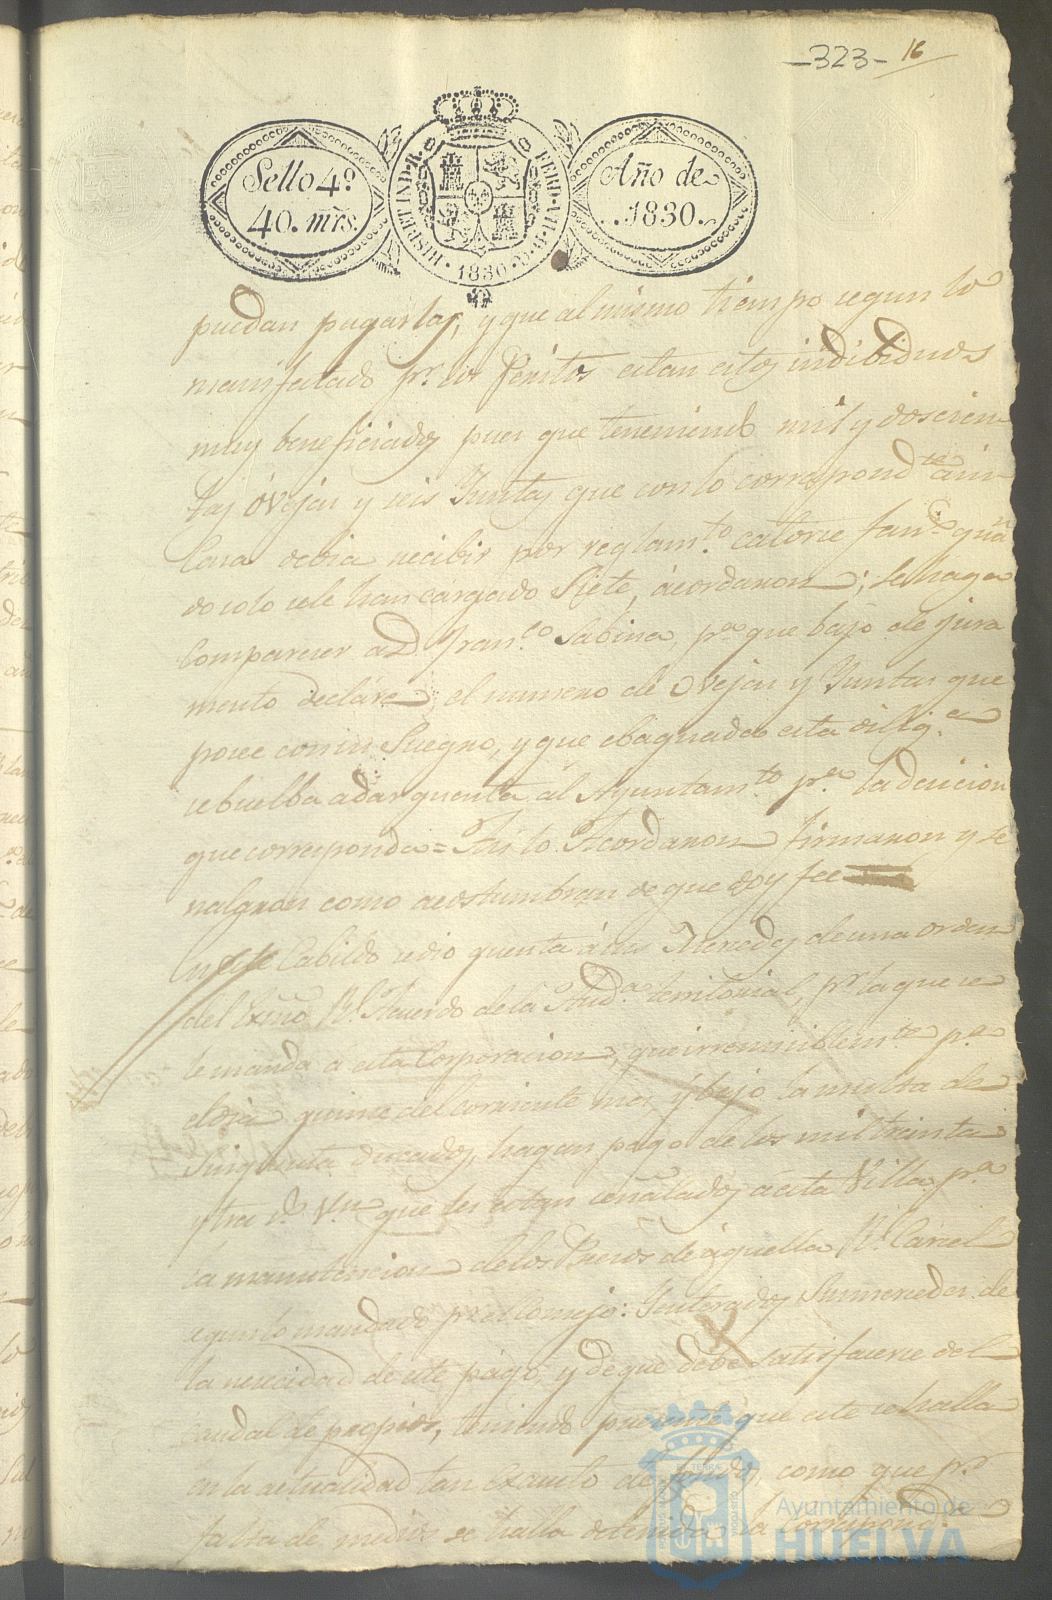 -323- 16
Sello 4º
40. mrs.
HISP. ET IND. R. FERD. VII. D. G. 1830
Año de
1830.
puedan pagarlas, y que al mismo tiempo segun lo
manifestado pr. los Peritos estan estos indibiduos
muy beneficiados pues que teneniendo mil y doscien
tas óvejas y seis Yuntas que con lo correspondte á un
Casa debia recibir por reglamto. catorce fans. quan
do solo sele han cárgado Siete, ácordaron; se haga
comparecer a D. Franco. Sabina, pa. que bajo de jura
mento decláre el numero de Ovejas y Yuntas que
posee con su Suegro, y que ebaquada esta dilig.a
se buelba a dar quenta al Ayuntamto. pa. la decicion
que corresponda = Asi lo Acordaron firmaron y se
nalaron como acostumbran de que doy fee
En este Cabildo se dio quenta á sus Mercedes de una orden
del Exmo. Rl. Acuerdo de la Auda. territorial, pr. la que se
le manda á esta Corporacion, que irremisiblemte. pa.
el dia quince del corriente mes, y bajo la multa de
Sinquenta ducados, hagan pago de los mil treinta
y tres rs. vn. que les estan señalados á esta Villa pa.
la manutencion de los Presos de aquella Rl. Carcel
segun lo mandado pr. el Consejo: Ynterados Sus mercedes de
la necesidad de este págo, y de que debe satisfacerse del
caudal de propios, teniendo presente que este se halla
en la actualidad tan exausto de fondos, como que pr.
falta de medios se halla detenida la correspond.a
Ayuntamiento de
HUELVA